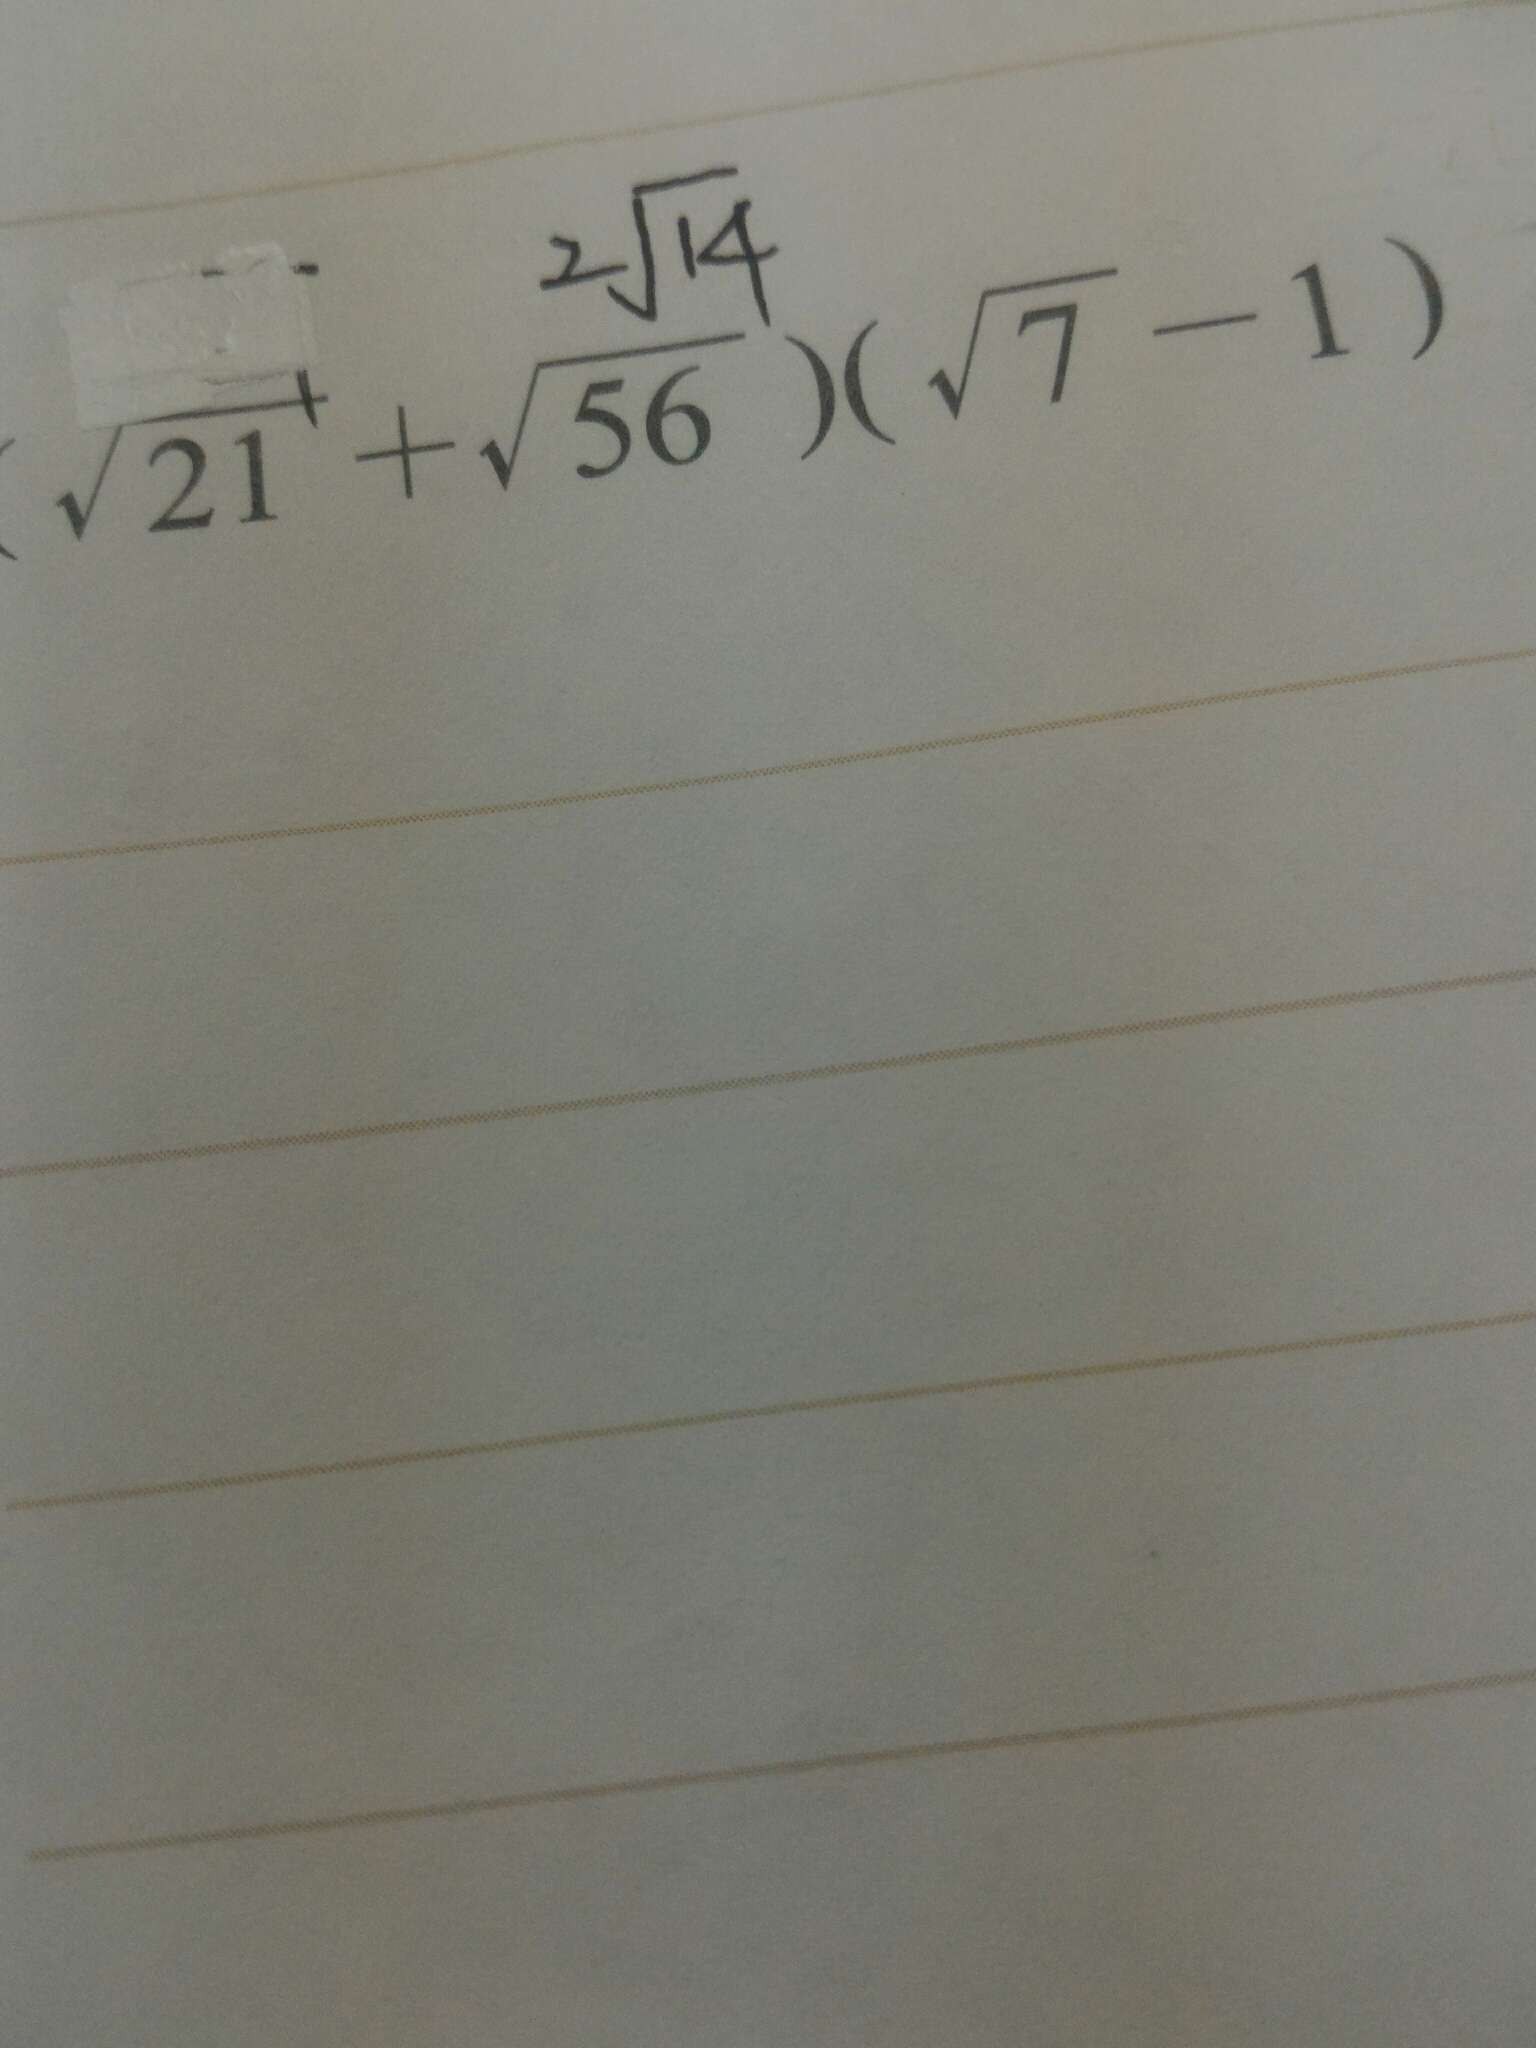 2√14
(√21+√56)(√7-1)